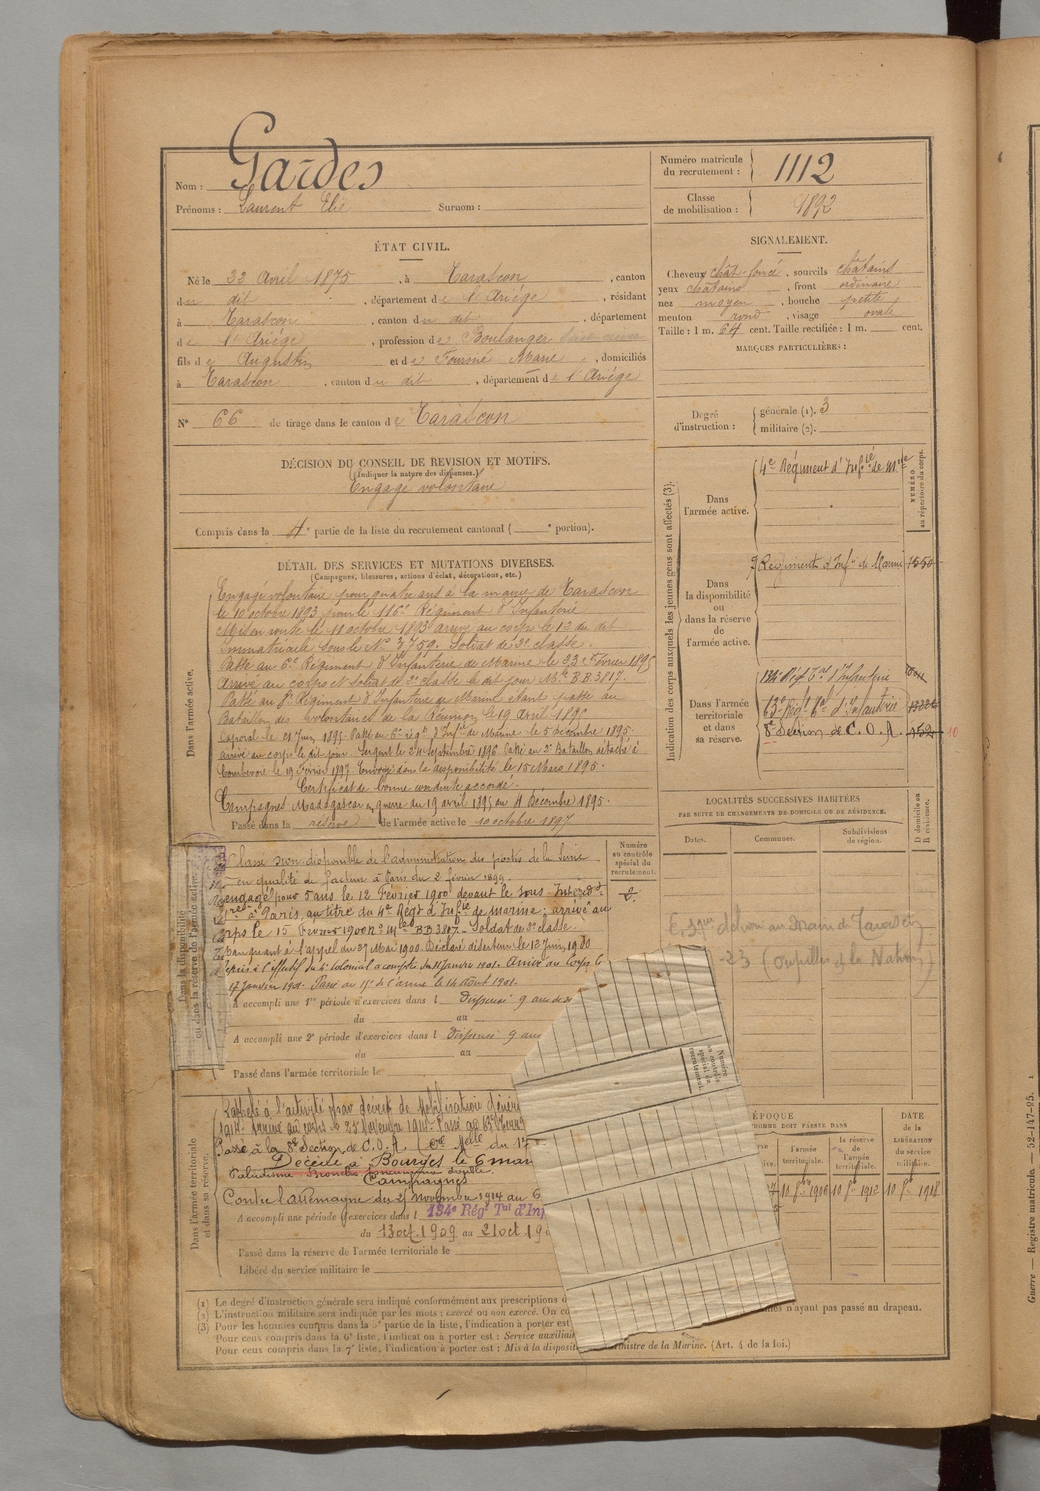 Nom : Gardes
Prénoms : Laurent Elie Surnom :
Numéro matricule du recrutement : 1112
Classe de mobilisation : 1892
ÉTAT CIVIL.
Né le 22 Avril 1875, à Tarascon, canton
du dit, département de l'Ariége, résidant
à Tarascon, canton du dit, département
de l'Ariége, profession de Boulanger
fils de Augustin et de Fourné Marie, domiciliés
à Tarascon, canton du dit, département de l'Ariége
N° 66 de tirage dans le canton de Tarascon
SIGNALEMENT.
Cheveux chât. foncé, sourcils châtains
yeux châtains, front ordinaire
nez moyen, bouche petite
menton rond, visage ovale
Taille : 1 m. 64 cent. Taille rectifiée : 1 m. cent.
MARQUES PARTICULIÈRES :
Degré d'instruction : générale (1). 3
militaire (2).
DÉCISION DU CONSEIL DE REVISION ET MOTIFS.
(Indiquer la nature des dispenses.)
Engagé volontaire
Compris dans la partie de la liste du recrutement cantonal ( portion).
DÉTAIL DES SERVICES ET MUTATIONS DIVERSES.
(Campagnes, blessures, actions d'éclat, décorations, etc.)
Dans l'armée active.
Engagé volontaire pour quatre ans à la mairie de Tarascon
le 10 octobre 1893 pour le 116e Régiment d'Infanterie
Mis en route le 11 octobre 1893 arrivé au corps le 13 du dit
Immatriculé sous le N° 3759. Soldat de 2e classe.
Passé au 6e Régiment d'Infanterie de Marine le 22 Février 1895
Arrivé au corps et soldat de 2e classe le dit jour Mle BB 3817.
Passé au Régiment d'Infanterie de Marine étant passé au
Bataillon des Volontaires de la Réunion le 19 Avril 1895
Caporal le 21 Juin 1895. Passé au 6e régt d'Infie de Marine le 5 décembre 1895
arrivé au corps le dit jour. Sergent le 24 Septembre 1896. Passé au 2e Bataillon détaché à
le 19 Février 1897. Envoyé dans la disponibilité le 15 Mars 1895.
Certificat de bonne conduite accordé.
Campagnes Madagascar guerre du 19 avril 1895 au 4 Décembre 1895.
Passé dans la réserve de l'armée active le 10 octobre 1897
Indication des corps auxquels les jeunes gens sont affectés (3).
NUMÉRO au répertoire du corps.
Dans l'armée active.
4e Régiment d'Infie de Mne
Dans la disponibilité ou dans la réserve de l'armée active.
Régiment d'Infie de Marine 1550
Dans l'armée territoriale et dans sa réserve.
134e Régt Tal d'Infanterie
63e Régt d'Infanterie
8e Section de C.O.A. 152
LOCALITÉS SUCCESSIVES HABITÉES
PAR SUITE DE CHANGEMENTS DE DOMICILE OU DE RÉSIDENCE.
Dates. Communes. Subdivisions de région. D domicile ou R résidence.
(Pupilles de la Nation)
Numéro au contrôle spécial du recrutement.
Dans la disponibilité ou dans la réserve de l'armée active.
Classé non disponible de l'administration des postes de la Seine
en qualité de facteur à Paris du 2 février 1899
Rengagé pour 5 ans le 12 Février 1900 devant le Sous-Intendt
à Paris, au titre du 4e Régt d'Infie de marine; arrivé au
corps le 15 Février 1900 N° Mle BB 3817. Soldat de 2e classe.
Manquant à l'appel du 27 Mai 1900. Déclaré déserteur le 12 Juin 1900
à l'effectif du 4e Colonial à compter du 11 Janvier 1901. Arrivé au Corps le
17 Janvier 1901.
A accompli une 1re période d'exercices dans l Dispensé 9 ans de
du au
A accompli une 2e période d'exercices dans l Dispensé 9 ans
du au
Passé dans l'armée territoriale le
Numéro au contrôle spécial du recrutement.
Dans l'armée territoriale et dans sa réserve.
Rappelé à l'activité par décret de Mobilisation Généra
1914. Arrivé au corps le 25 Novembre 1914.
Passé à la 8e Section de C.O.A.
Décédé à Bourges le 6 mar
Paludisme
Campagnes
Contre l'Allemagne du 25 Novembre 1914 au 6
A accompli une période d'exercices dans l 134e Régt Tal d'Inf
du 13 oct. 1909 au 21 oct 19
Passé dans la réserve de l'armée territoriale le
Libéré du service militaire le
ÉPOQUE
HOMME DOIT PASSER DANS
l'armée territoriale. la réserve de l'armée territoriale.
DATE DE LA LIBÉRATION du service militaire.
10 fre 1906 10 fre 1912 10 fre 1918
(1) Le degré d'instruction générale sera indiqué conformément aux prescriptions d
(2) L'instruction militaire sera indiquée par les mots : exercé ou non exercé. On co
n'ayant pas passé au drapeau.
(3) Pour les hommes compris dans la 5e partie de la liste, l'indication à porter est
Pour ceux compris dans la 6e liste, l'indication à porter est : Service auxiliair
Pour ceux compris dans la 7e liste, l'indication à porter est : Mis à la disposit ministre de la Marine. (Art. 4 de la loi.)
Guerre — Registre matricule. — 52-147-95.